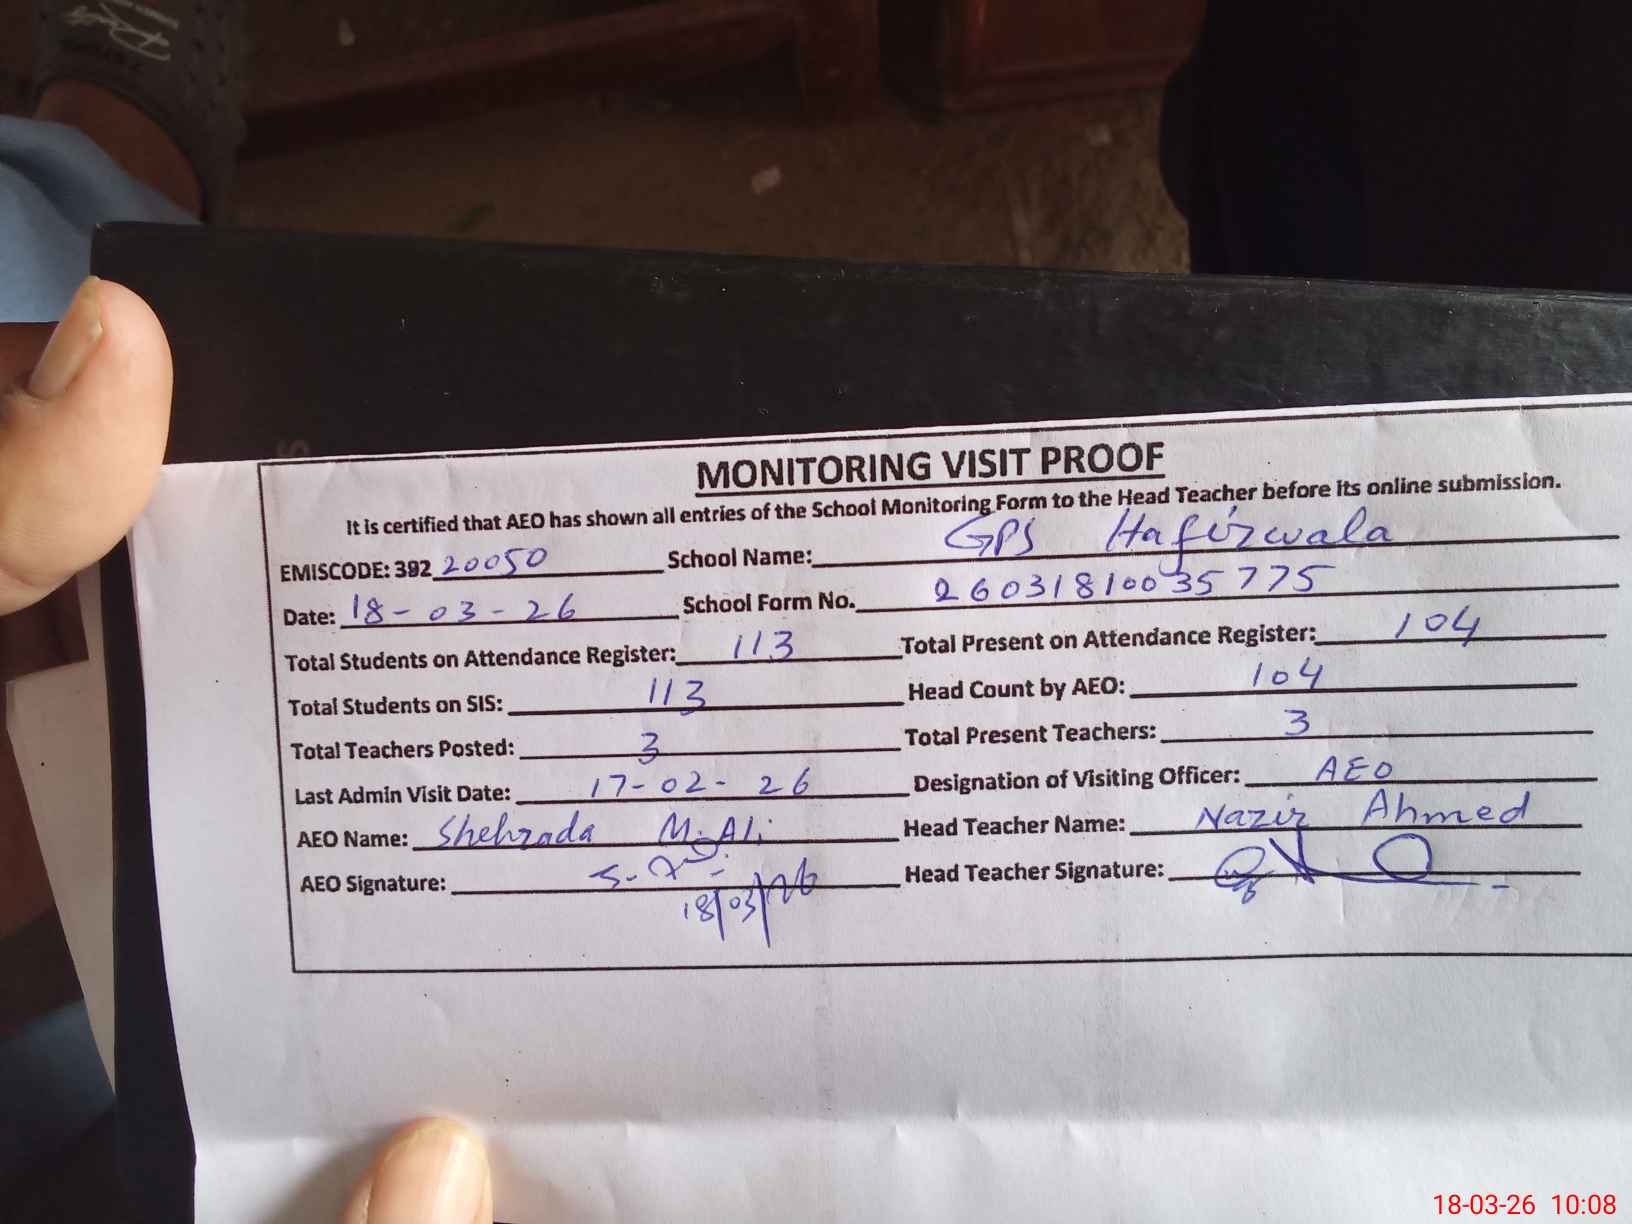 MONITORING VISIT PROOF
It is certified that AEO has shown all entries of the School Monitoring Form to the Head Teacher before its online submission.
EMISCODE: 392 20050 School Name: GPS Hafizwala
Date: 18-03-26 School Form No. 26031810035775
Total Students on Attendance Register: 113 Total Present on Attendance Register: 104
Total Students on SIS: 113 Head Count by AEO: 104
Total Teachers Posted: 3 Total Present Teachers: 3
Last Admin Visit Date: 17-02-26 Designation of Visiting Officer: AEO
AEO Name: Shehzada M. Ali Head Teacher Name: Nazir Ahmed
AEO Signature: Head Teacher Signature:
18/03/26
18-03-26 10:08